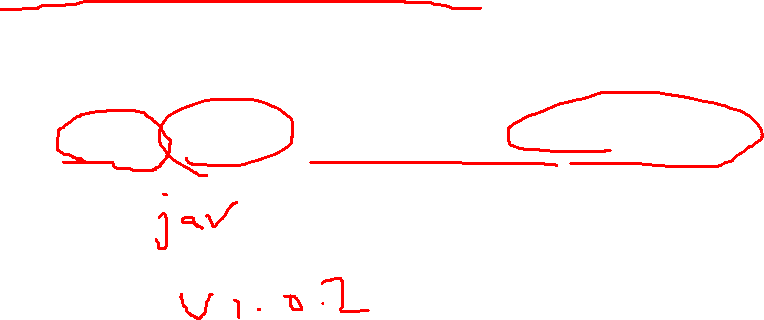 jav
v1.0.2